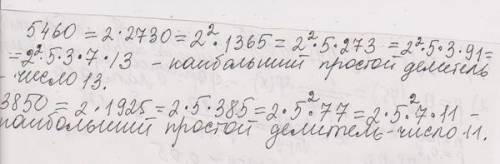 5460 = 2·2730 = 2²·1365 = 2²·5·273 = 2²·5·3·91=
= 2²·5·3·7·13 - наибольший простой делитель
- число 13.
3850 = 2·1925 = 2·5·385 = 2·5²·77 = 2·5²·7·11 -
наибольший простой делитель - число 11.